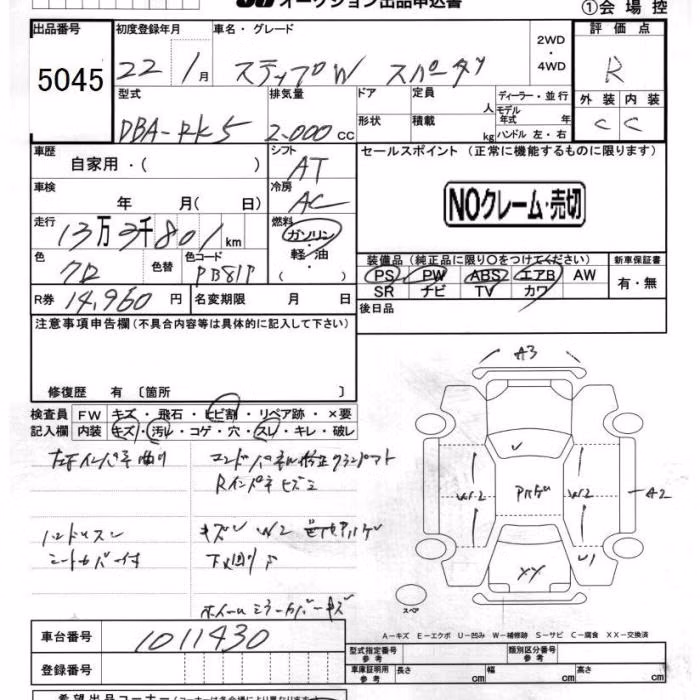 オークション出品申込書
①会場控
出品番号 5045
初度登録年月 22 1月
車名・グレード ステップW スパーダ
2WD・4WD
評価点 R
外装 C 内装 C
型式 DBA-RK5
排気量 2.000cc
ドア 形状
定員 人 積載 kg
ディーラー・並行
モデル年式 年
ハンドル 左・右
車歴 自家用・( )
シフト AT
セールスポイント (正常に機能するものに限ります)
NOクレーム・売切
車検 年 月( 日)
冷房 AC
走行 13万3千801km
燃料 ガソリン・軽油・( )
色 クロ 色替 色コード PB81P
装備品(純正品に限り○をつけてください) 新車保証書
PS PW ABS エアB AW
SR ナビ TV カワ
有・無
R券 14,960円 名変期限 月 日
後日品
注意事項申告欄(不具合内容等は具体的に記入して下さい)
修復歴 有〔箇所 〕
検査員記入欄 FW キズ・飛石・ヒビ割・リペア跡・×要
内装 キズ・汚レ・コゲ・穴・スレ・キレ・破レ
左Fインパネ曲り
Rインパネヒズミ
ハンドルスレ
シートカバー付
キズ W2
下廻りサ
ホイールミラーカバーキズ
A3
W2 W2 A2
U1
XX
スペア
A－キズ E－エクボ U－凹み W－補修跡 S－サビ C－腐食 XX－交換済
車台番号 1011430
型式指定番号 参考 類別区分番号 参考
登録番号
車庫証明用 参考 長さ cm 幅 cm 高さ cm
希望出品コーナー